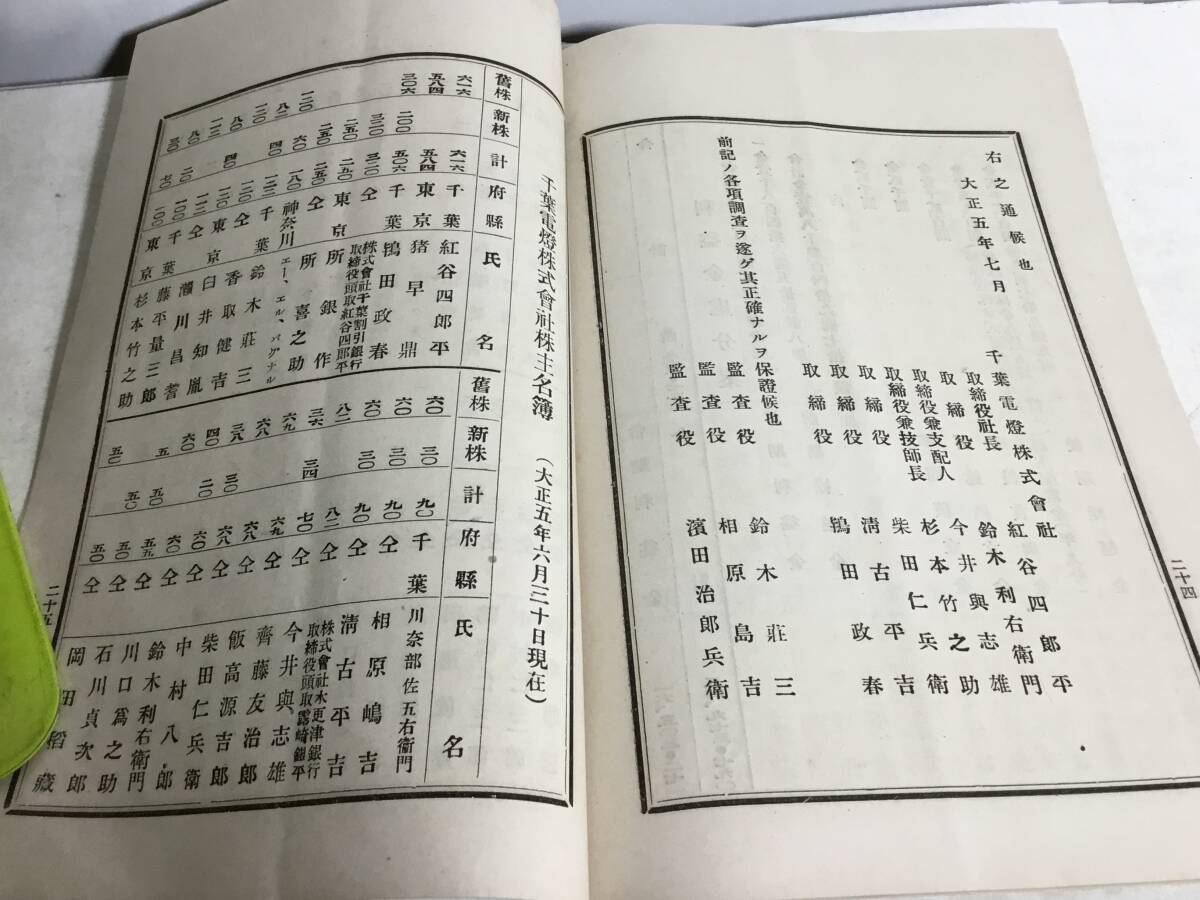 右之通候也
大正五年七月
千葉電燈株式會社
取締役社長 紅谷四郎平
取締役 鈴木利右衛門
取締役兼支配人 今井與志雄
取締役兼技師長 杉本竹之助
取締役 柴田仁兵衛
取締役 清古平吉
取締役 鴨田政春
前記ノ各項調査ヲ遂ゲ其正確ナルヲ保證候也
監査役 鈴木莊三
監査役 相原島吉
監査役 濱田治郎兵衛
二十四
千葉電燈株式會社株主名簿 (大正五年六月三十日現在)
舊株 新株 計 府縣 氏名
六一六 六一六 千葉 紅谷四郎平
五八四 五八四 東京 猪早鼎
三〇六 二〇〇 五〇六 千葉 鴨田政春
三二〇 三二〇 仝 株式會社千葉割引銀行取締役頭取紅谷四郎平
二五〇 二五〇 東京 所銀作
二五〇 二五〇 仝 所喜之助
一二〇 六〇 一八〇 神奈川 エー、エル、バグナル
八二 四〇 一二二 千葉 鈴木莊三
一二〇 一二〇 仝 香取健吉
八〇 四〇 一二〇 東京 臼井知胤
一一三 一一三 仝 瀨川昌耆
八〇 二〇 一〇〇 千葉 藤平量三郎
三〇 七〇 一〇〇 東京 杉本竹之助
舊株 新株 計 府縣 氏名
六〇 三〇 九〇 千葉 川奈部佐五右衛門
六〇 三〇 九〇 仝 相原嶋吉
六〇 三〇 九〇 仝 清古平吉
八二 八二 仝 株式會社木更津銀行取締役頭取露崎鎺平
三六 三四 七〇 仝 今井與志雄
六九 六九 仝 齊藤友治郎
六八 六八 仝 飯高源吉郎
三八 三〇 六八 仝 柴田仁兵衛
四〇 二〇 六〇 仝 中村八郎
六〇 六〇 仝 鈴木利右衛門
五 五〇 五五 仝 川口爲之助
五〇 五〇 仝 石川貞次郎
五〇 五〇 仝 岡田稻藏
二十五